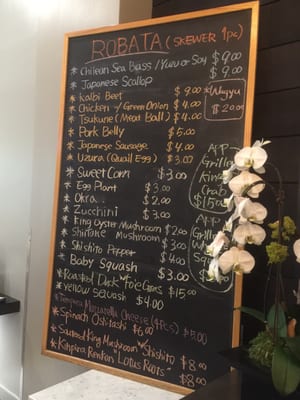 ROBATA (SKEWER 1pc)
* Chilean Sea Bass / Yuzu or Soy $9.00
* Japanese Scallop $9.00
* Kalbi Beef $9.00
* Wagyu $20.00
* Chicken w/ Green Onion $4.00
* Tsukune (Meat Ball) $4.00
* Pork Belly $5.00
* Japanese Sausage $4.00
* Uzura (Quail Egg) $3.00
* Sweet Corn $3.00
* Egg Plant $3.00
* Okra $2.00
* Zucchini $3.00
* King Oyster Mushroom $2.00
* Shiitake Mushroom $3.00
* Shishito Pepper $4.00
* Baby Squash $3.00
* Roasted Duck Foie Gras $15.00
* Yellow Squash $4.00
Tempura Mozzarella Cheese (4PCS) $5.00
* Spinach Oshitashi $6.00
* Sauteed King Mushroom w/ Shishito $8.00
* Kinpira Renkon "Lotus Roots" $8.00
APP
Grilled
King
Crab
$15.00
APP
Grilled